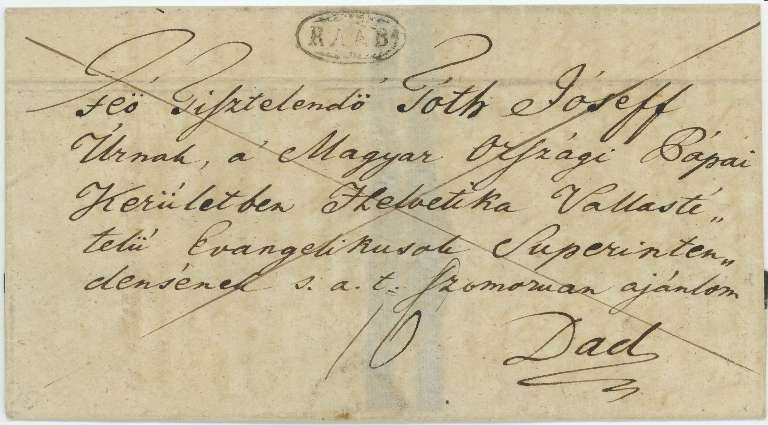 RAAB
Feö Tisztelendö Tóth Jóseff
Úrnak, a' Magyar Országi Pápai
Kerületben Helvetika Vallasté„
telü Evangelikusok Superinten„
densének s. a. t. Szomoruan ajánlom
10
Dad